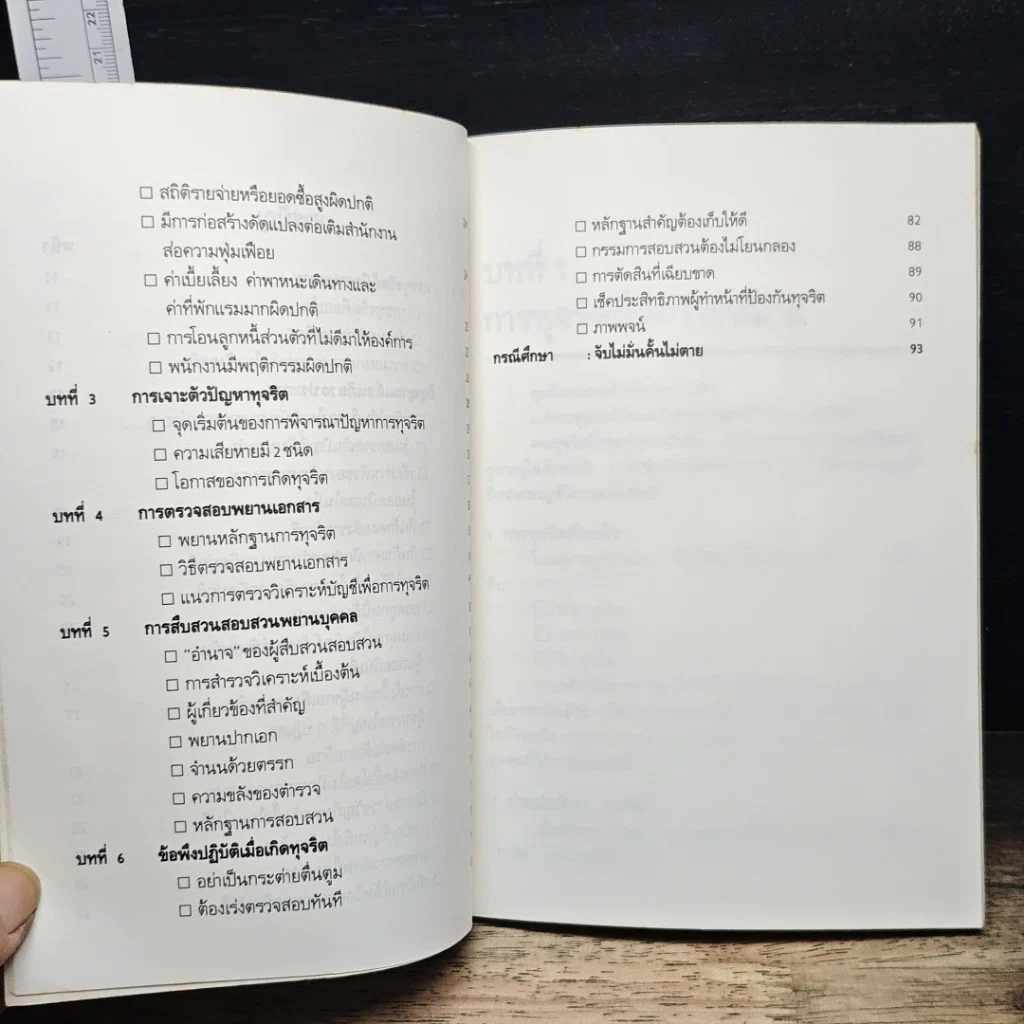 22
21
□ สถิติรายจ่ายหรือยอดซื้อสูงผิดปกติ
□ มีการก่อสร้างดัดแปลงต่อเติมสำนักงาน
ส่อความฟุ่มเฟือย
□ ค่าเบี้ยเลี้ยง ค่าพาหนะเดินทางและ
ค่าที่พักแรมมากผิดปกติ
□ การโอนลูกหนี้ส่วนตัวที่ไม่ดีมาให้องค์การ
□ พนักงานมีพฤติกรรมผิดปกติ
บทที่ 3 การเจาะตัวปัญหาทุจริต
□ จุดเริ่มต้นของการพิจารณาปัญหาการทุจริต
□ ความเสียหายมี 2 ชนิด
□ โอกาสของการเกิดทุจริต
บทที่ 4 การตรวจสอบพยานเอกสาร
□ พยานหลักฐานการทุจริต
□ วิธีตรวจสอบพยานเอกสาร
□ แนวการตรวจวิเคราะห์บัญชีเพื่อการทุจริต
บทที่ 5 การสืบสวนสอบสวนพยานบุคคล
□ “อำนาจ” ของผู้สืบสวนสอบสวน
□ การสำรวจวิเคราะห์เบื้องต้น
□ ผู้เกี่ยวข้องที่สำคัญ
□ พยานปากเอก
□ จำนนด้วยตรรก
□ ความขลังของตำรวจ
□ หลักฐานการสอบสวน
บทที่ 6 ข้อพึงปฏิบัติเมื่อเกิดทุจริต
□ อย่าเป็นกระต่ายตื่นตูม
□ ต้องเร่งตรวจสอบทันที
□ หลักฐานสำคัญต้องเก็บให้ดี 82
□ กรรมการสอบสวนต้องไม่โยนกลอง 88
□ การตัดสินที่เฉียบขาด 89
□ เช็คประสิทธิภาพผู้ทำหน้าที่ป้องกันทุจริต 90
□ ภาพพจน์ 91
กรณีศึกษา : จับไม่มั่นคั้นไม่ตาย 93